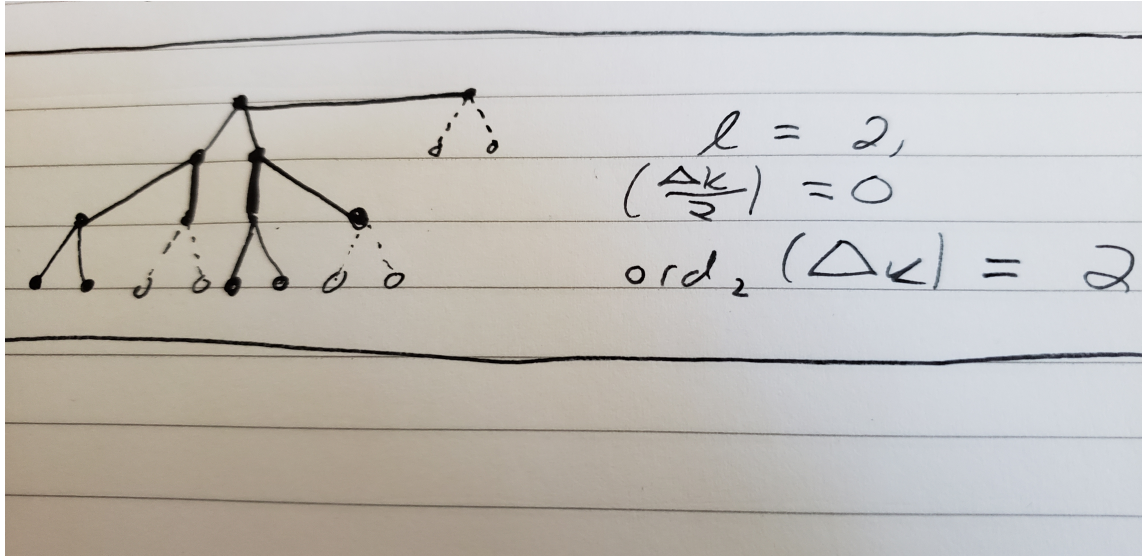 l = 2,
(Δk/2) = 0
ord₂ (Δk) = 2